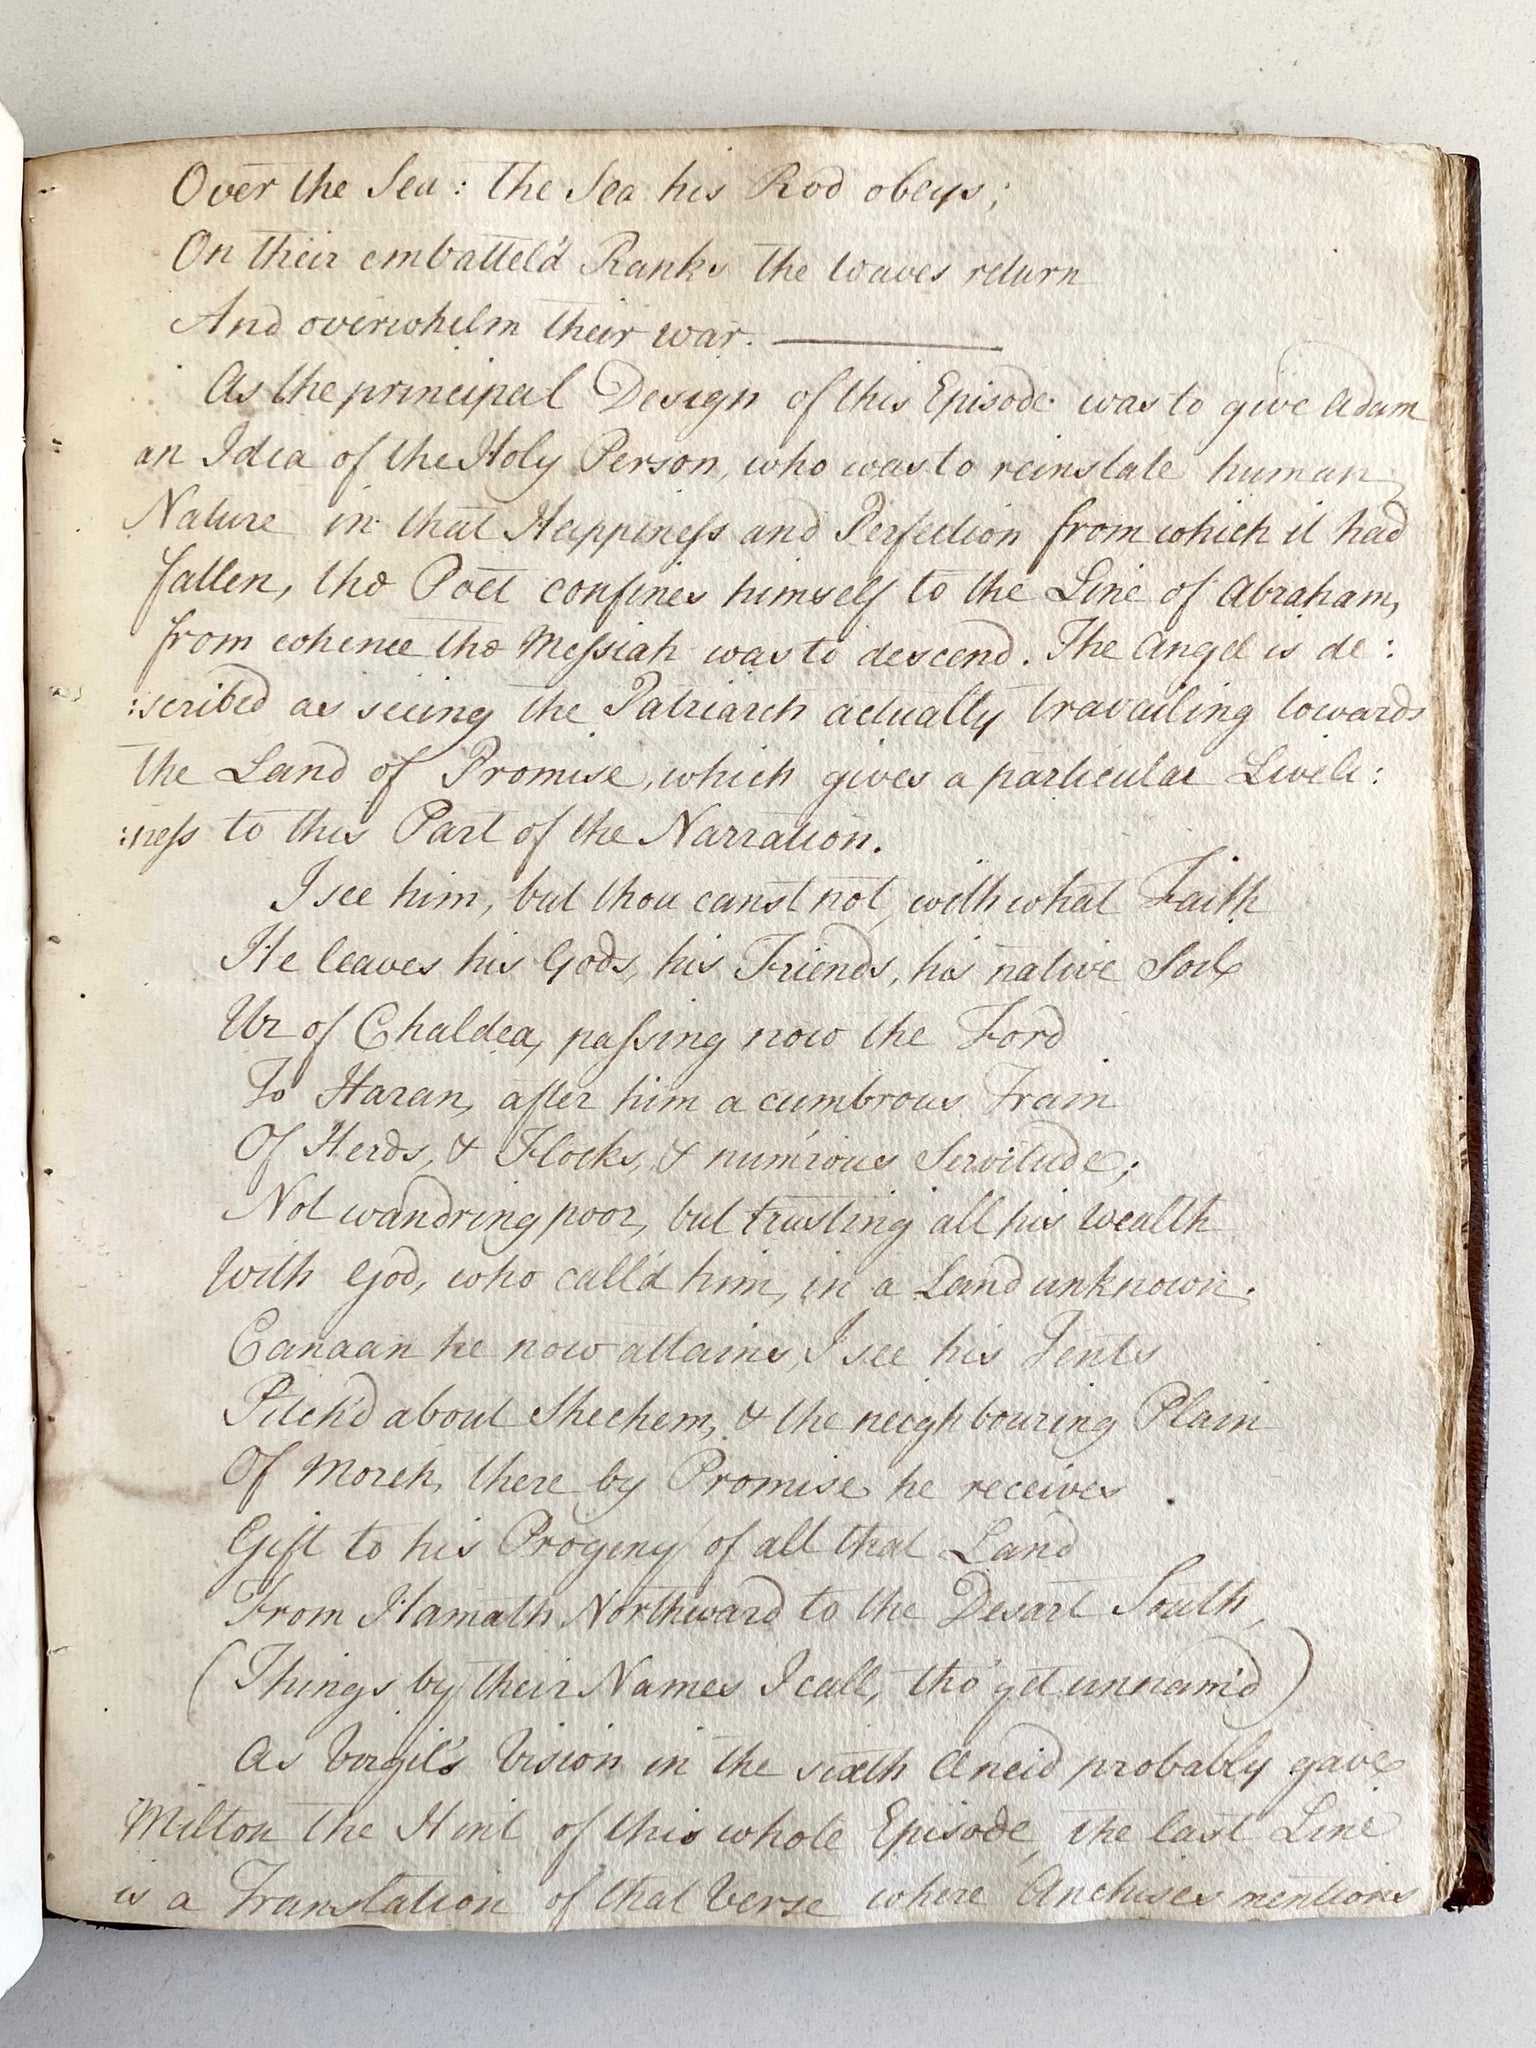 Over the Sea: the Sea his Rod obeys;
On their embattel'd Ranks the waves return
And overwhelm their war. ———
As the principal Design of this Episode was to give Adam
an Idea of the Holy Person, who was to reinstate human
Nature in that Happineſs and Perfection from which it had
fallen, the Poet confines himself to the Line of Abraham,
from whence the Meſsiah was to descend. The Angel is de:
:scribed as seeing the Patriarch actually travailing towards
the Land of Promise, which gives a particular Liveli:
:neſs to this Part of the Narration.
I see him, but thou canst not, with what Faith
He leaves his Gods, his Friends, his native Soil
Ur of Chaldea, paſsing now the Ford
To Haran, after him a cumbrous Train
Of Herds, & Flocks, & num'rous Servitude;
Not wandring poor, but trusting all his wealth
With God, who call'd him, in a Land unknown.
Canaan he now attains, I see his Tents
Pitch'd about Shechem, & the neighbouring Plain
Of Moreh, there by Promise he receives
Gift to his Progeny of all that Land
From Hamath Northward to the Desart South,
(Things by their Names I call, tho' yet unnam'd)
As Virgil's Vision in the sixth Æneid probably gave
Milton the Hint of this whole Episode, the last Line
is a Translation of that Verse where Anchises mentions